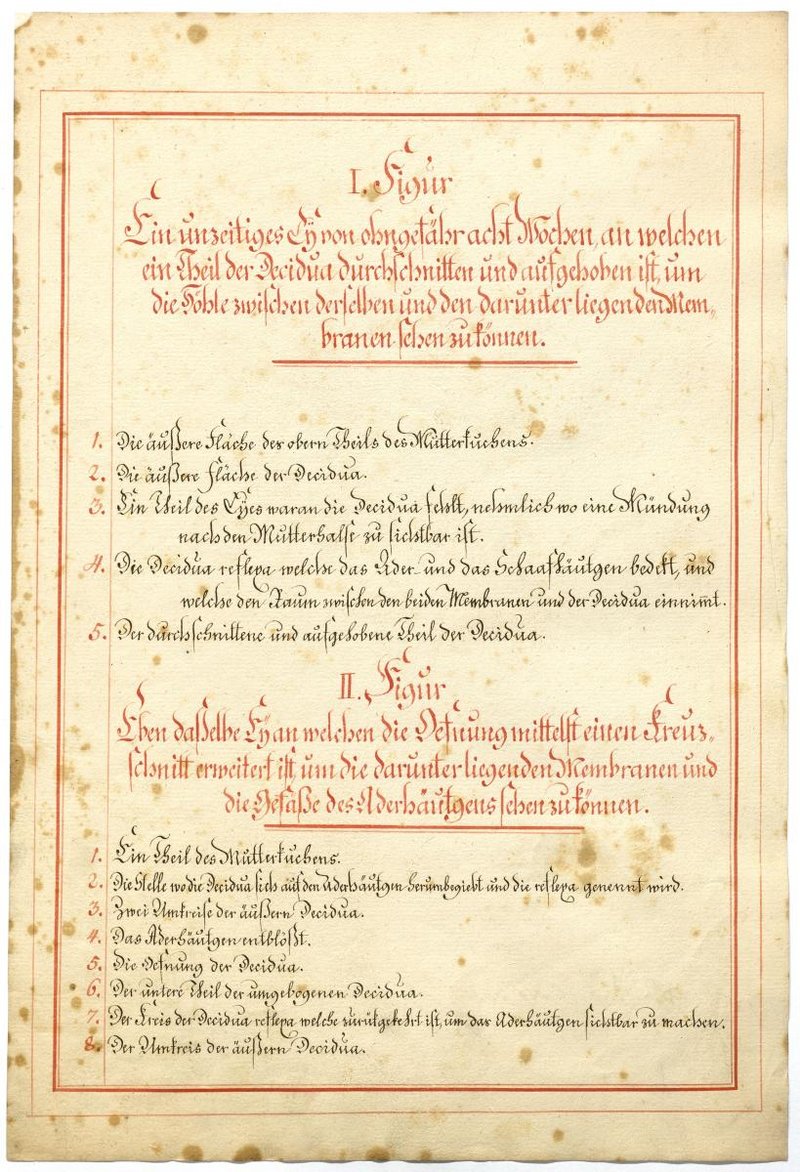 I. Figur
Ein unzeitiges Eÿ von ohngefähr acht Wochen, an welchen
ein Theil der Decidua durchschnitten und aufgehoben ist, um
die Höhle zwischen derselben und den darunter liegenden Mem-
branen sehen zu können.
1. Die äußere Fläche des obern Theils des Mutterkuchens.
2. Die äußere Fläche der Decidua.
3. Ein Theil des Eÿes waran die Decidua fehlt, nehmlich wo eine Mündung
nach den Mutterhalse zu sichtbar ist.
4. Die Decidua reflexa welche das Ader- und das Schaafhäutgen bedekt, und
welche den Raum zwischen den beiden Membranen und der Decidua einnim̄t.
5. Der durchschnittene und aufgehobene Theil der Decidua.
II. Figur
Eben daßelbe Eÿ an welchen die Oefnung mittelst einen Kreuz-
schnitt erweitert ist, um die darunter liegenden Membranen und
die Gefäße des Aderhäutgens sehen zu können.
1. Ein Theil des Mutterkuchens.
2. Die Stelle wo die Decidua sich auf den Aderhäutgen herumbegiebt und die reflexa genennt wird.
3. Zwei Umkreise der äußern Decidua.
4. Das Aderhäutgen entblößt.
5. Die Oefnung der Decidua.
6. Der untere Theil der umgebogenen Decidua.
7. Der Kreis der Decidua reflexa welche zurükgekehrt ist, um das Aderhäutgen sichtbar zu machen.
8. Der Umkreis der äußern Decidua.